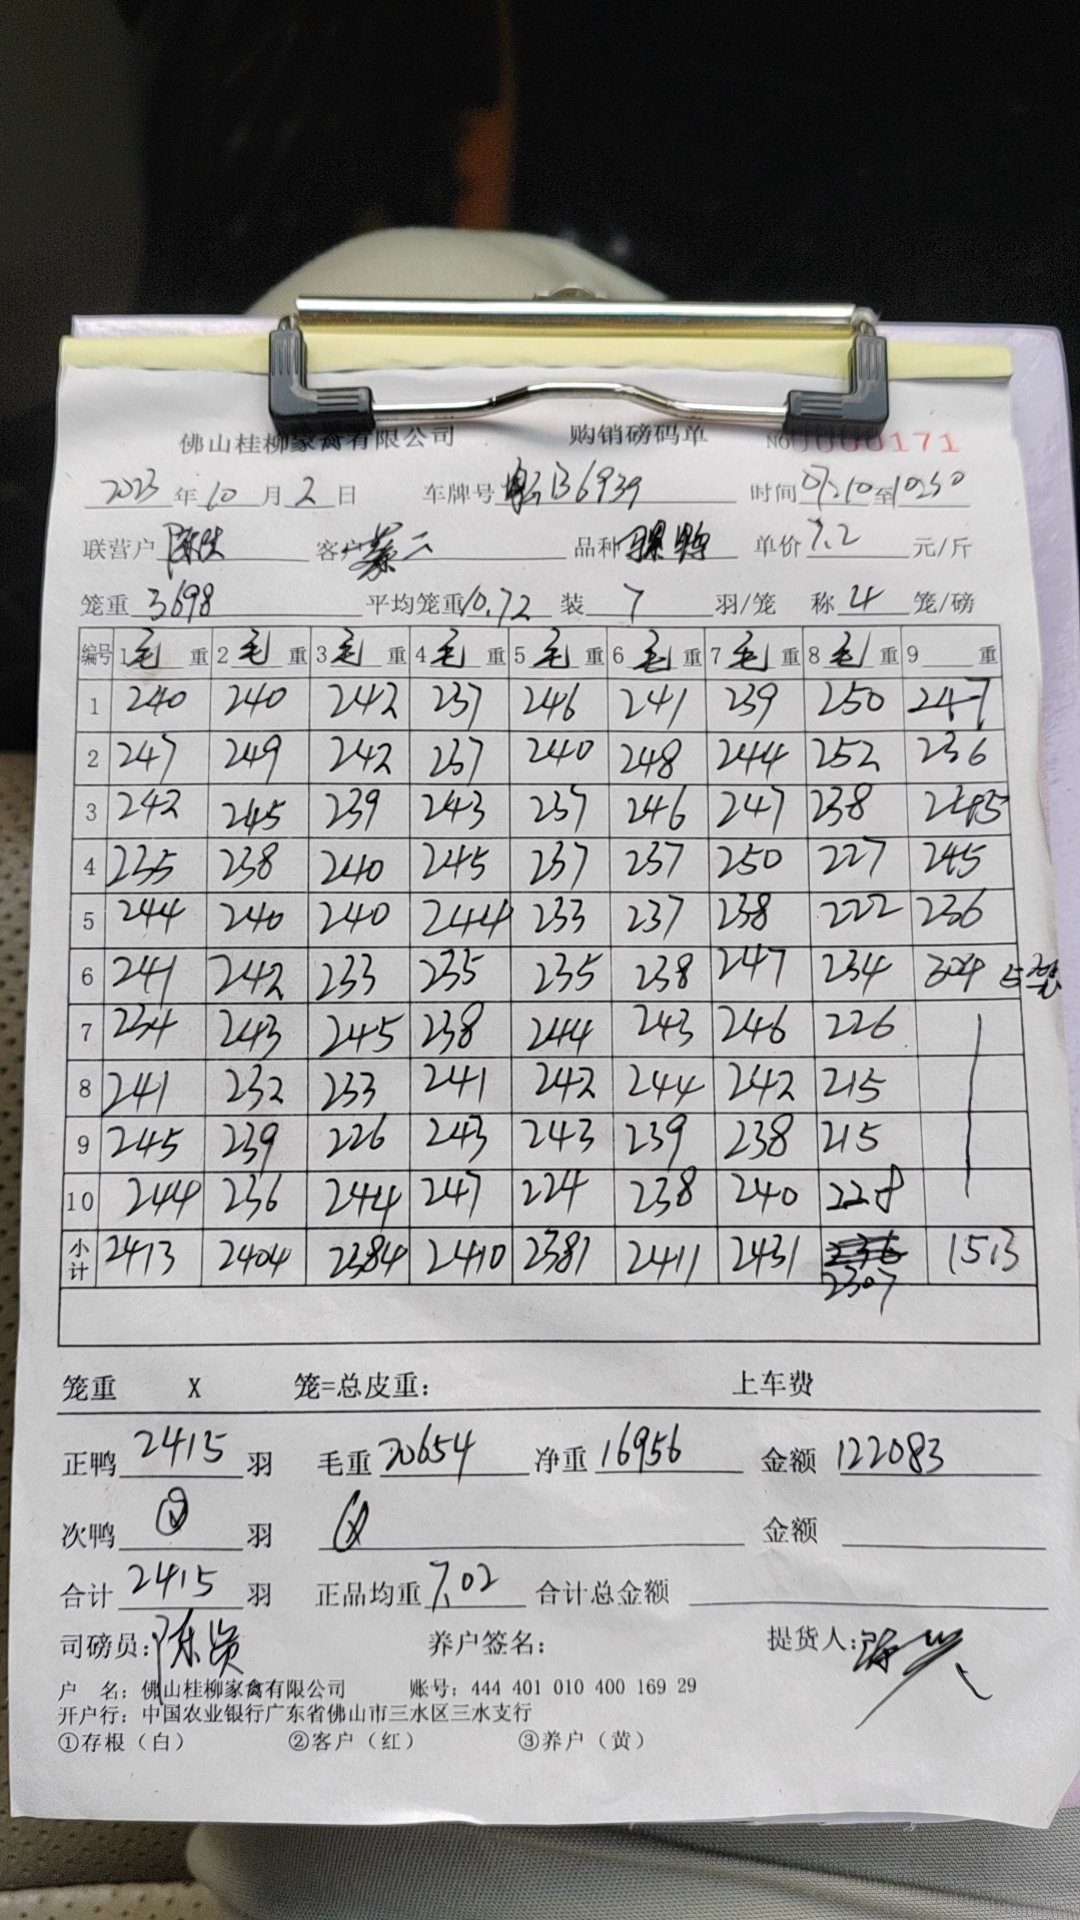 佛山桂柳家禽有限公司 购销磅码单 NO 0000171
2023 年 10 月 2 日 车牌号 B6939 时间 07:10 至 10:50
联营户 客户 蔡二 品种 单价 7.2 元/斤
笼重 3698 平均笼重 10.72 装 7 羽/笼 称 4 笼/磅
编号 1 毛 重 2 毛 重 3 毛 重 4 毛 重 5 毛 重 6 毛 重 7 毛 重 8 毛 重 9 重
1 240 240 242 237 246 241 239 250 247
2 247 249 242 237 240 248 244 252 236
3 242 245 239 243 237 246 247 238 245
4 235 238 240 245 237 237 250 227 245
5 244 240 240 244 233 237 238 222 236
6 241 242 233 235 235 238 247 234 304 5笼
7 234 243 245 238 244 243 246 226
8 241 232 233 241 242 244 242 215
9 245 239 226 243 243 239 238 215
10 244 236 244 247 224 238 240 228
小计 2413 2404 2384 2410 2381 2411 2431 2307 1513
笼重 X 笼=总皮重: 上车费
正鸭 2415 羽 毛重 20654 净重 16956 金额 122083
次鸭 羽 金额
合计 2415 羽 正品均重 7.02 合计总金额
司磅员: 养户签名: 提货人:
户 名: 佛山桂柳家禽有限公司 账号: 444 401 010 400 169 29
开户行: 中国农业银行广东省佛山市三水区三水支行
①存根（白） ②客户（红） ③养户（黄）